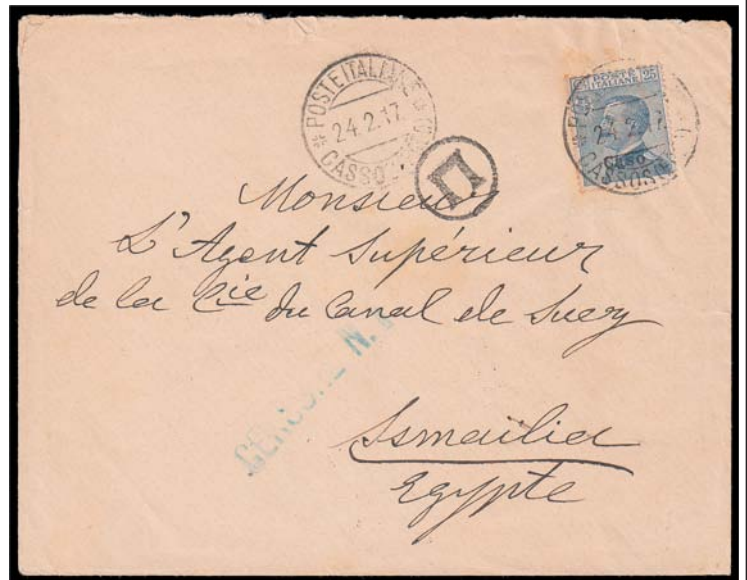 POSTE ITALIANE
24.2.17
CASSO
25
POSTE ITALIANE
24.2.17
Caso
CASSOS
Monsieur
L'Agent Supérieur
de la Cie du Canal de Suez
CENSURE N.
Ismailia
Egypte